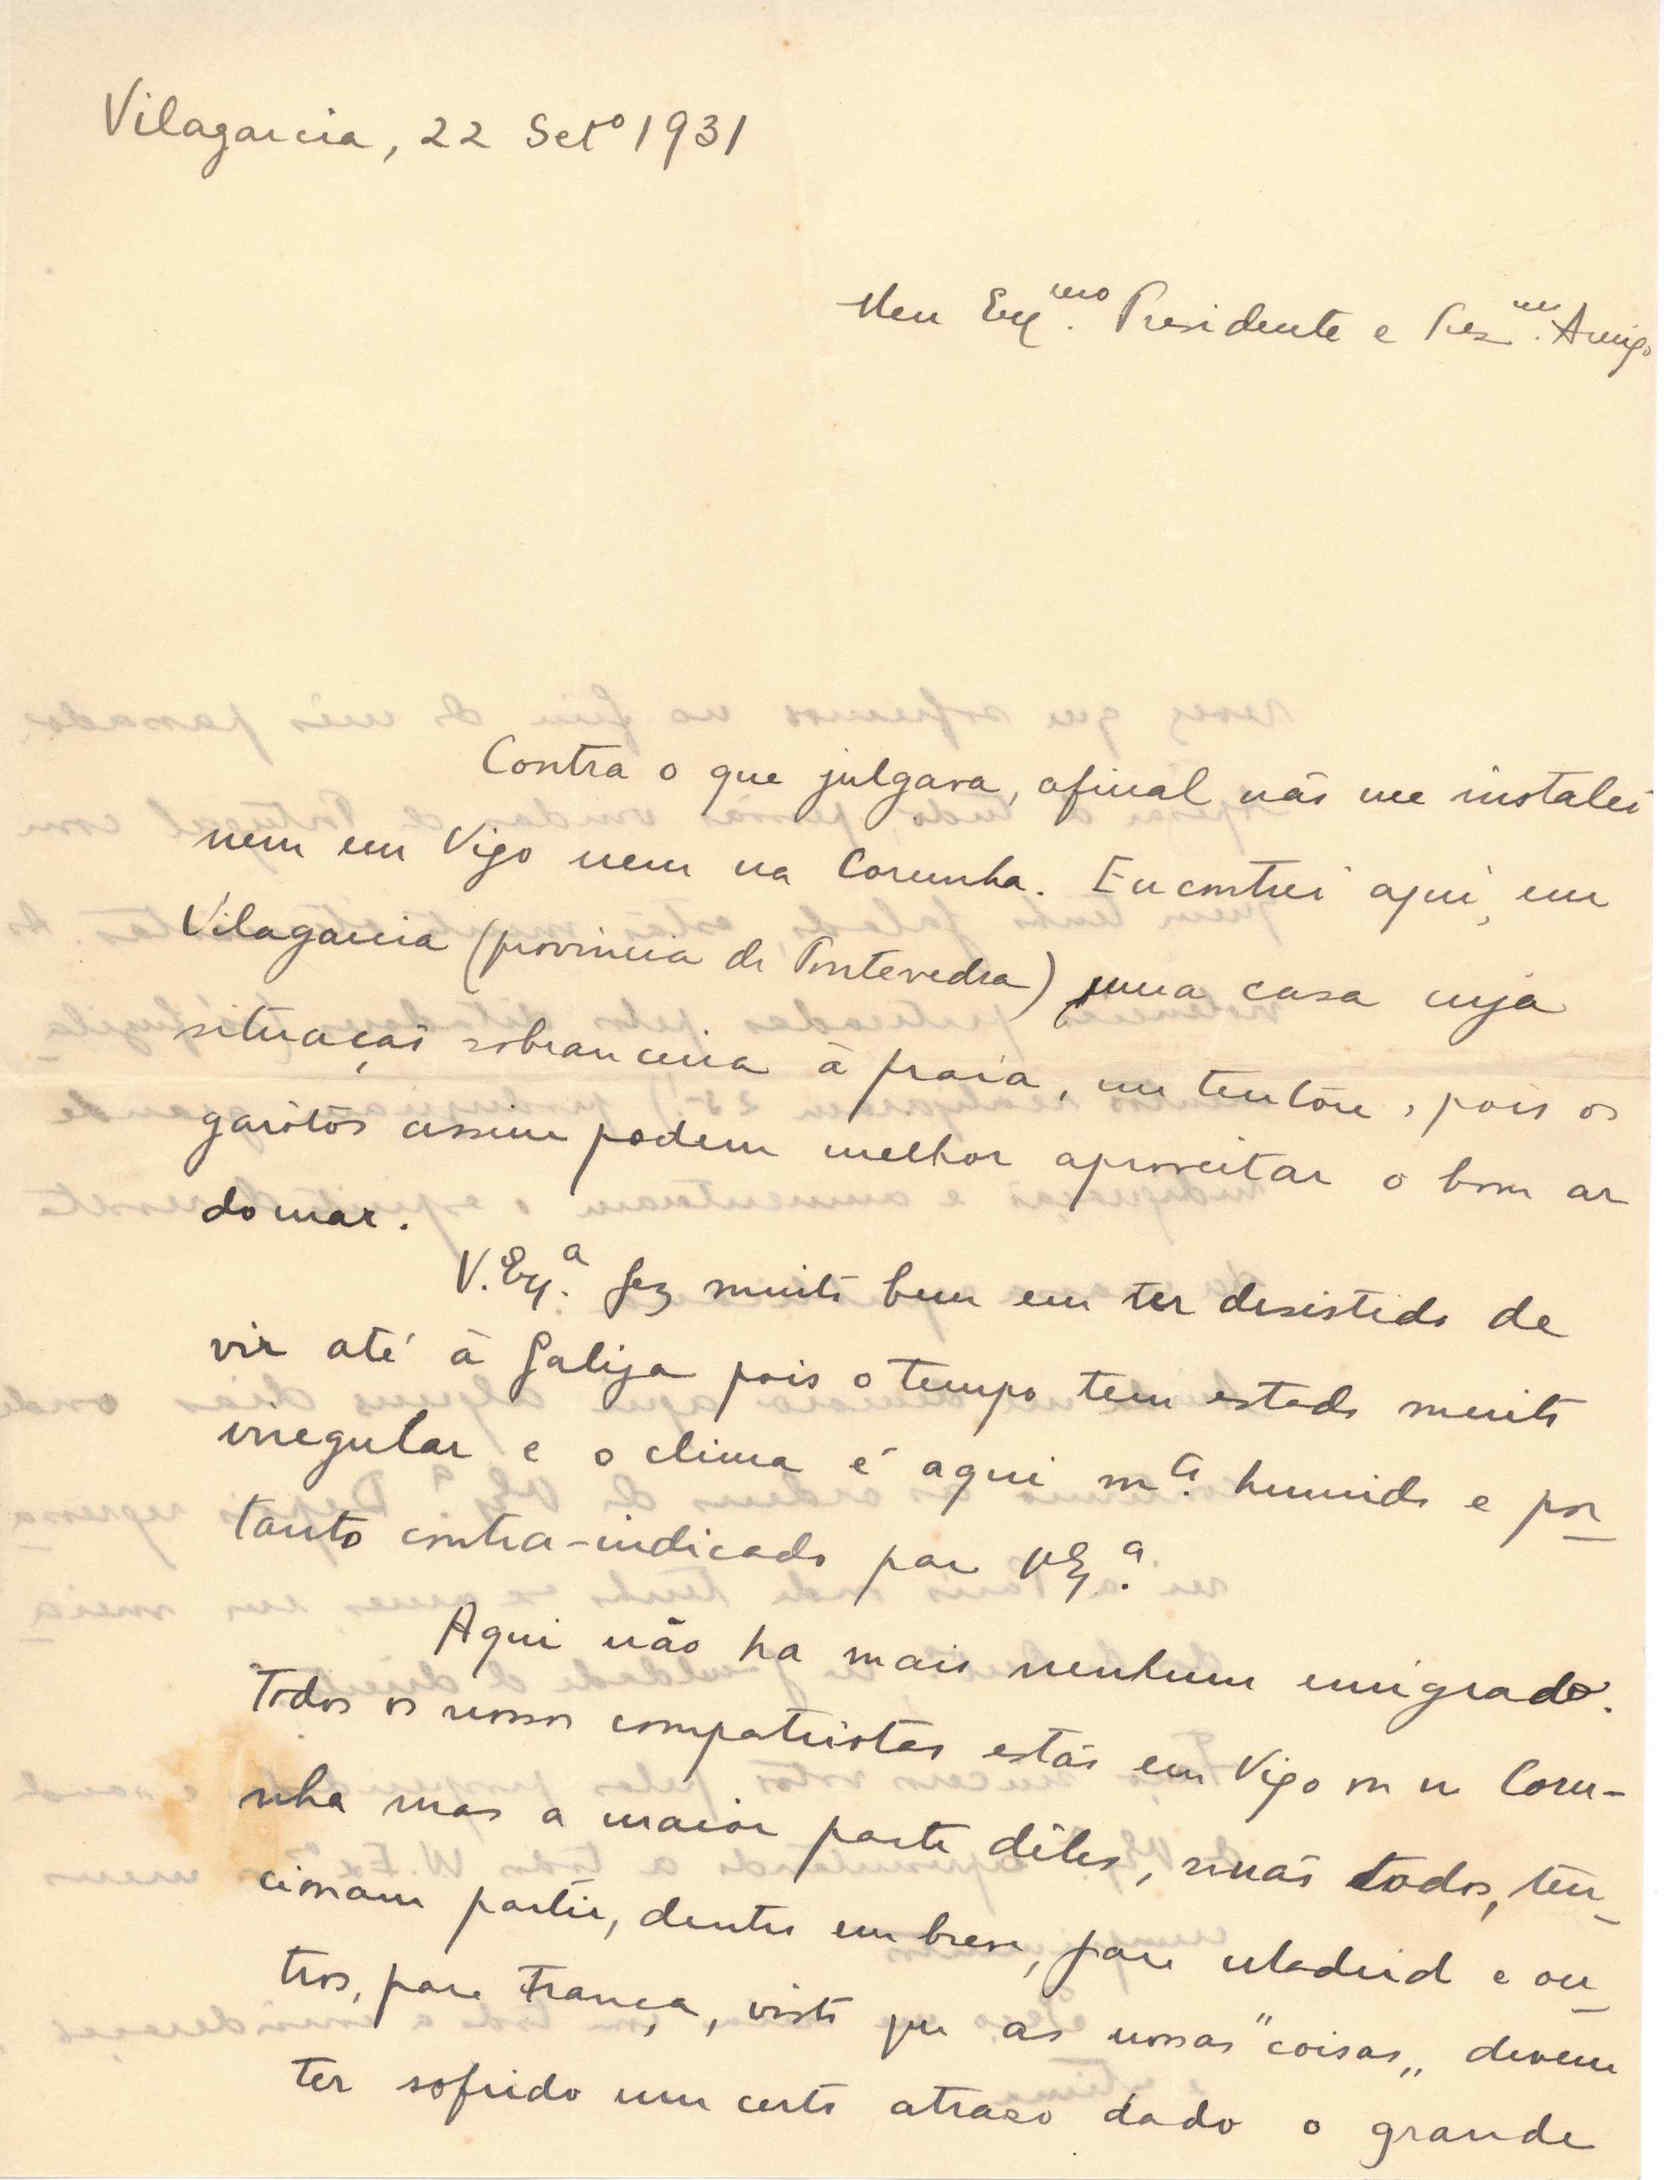 Vilagarcia, 22 Setº 1931
Meu Exmo. Presidente e Prezmo. Amigo
Contra o que julgava, afinal não me instalei
nem em Vigo nem na Corunha. Encontrei aqui, em
Vilagarcia (provincia de Pontevedra) uma casa cuja
situação sobranceira à praia, me tentou, pois os
garôtos assim podem melhor aproveitar o bom ar
do mar.
V. Exª. fez muito bem em ter desistido de
vir até à Galiza pois o tempo tem estado muito
irregular e o clima é aqui mto. humido e por-
tanto contra-indicado para V Exª.
Aqui não ha mais nenhum emigrado.
Todos os nossos compatriotas estão em Vigo ou na Coru-
nha mas a maior parte dêles, senão todos, ten-
cionam partir, dentro em breve, para Madrid e ou-
tros, para França, visto que as nossas "coisas" devem
ter sofrido um certo atraso dado o grande